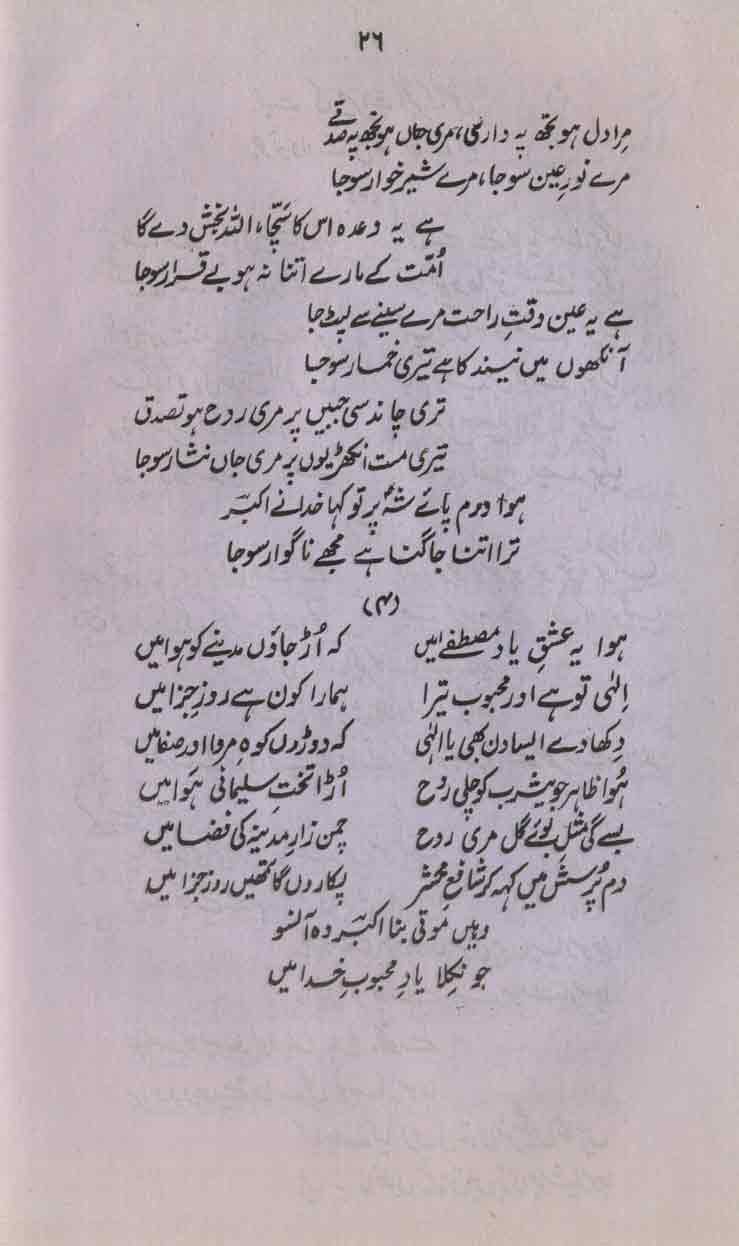 ۲۶
مرا دل ہو تجھ پہ داری، مری جاں ہو تجھ پہ صدقے
مرے نورِ عین سوجا، مرے شیر خوار سوجا
ہے یہ وعدہ اس کا سچّا، اللہ بخش دے گا
اُمّت کے مارے اتنا نہ ہو بے قرار سوجا
ہے یہ عین وقتِ راحت مرے سینے سے لپٹ جا
آنکھوں میں نیند کا ہے تیری خمار سوجا
تری چاند سی جبیں پر مری روح ہو تصدق
تیری مست انکھڑیوں پر مری جاں نثار سوجا
ہوا ورم پائے شہؐ پر تو کہا خدا نے اکبرؔ
ترا اتنا جاگنا ہے مجھے ناگوار سوجا
(۴)
ہوا یہ عشقِ یادِ مصطفےٰ میں کہ اُڑ جاؤں مدینے کو ہوا میں
اِلٰہی تو ہے اور محبوب تیرا ہمارا کون ہے روزِ جزا میں
دکھا دے ایسا دن بھی یا الٰہی کہ دوڑوں کوہِ مروا اور صفا میں
ہُوا ظاہر جو یثرب کو چلی روح اُڑا تختِ سلیمانی ہَوا میں
بسے گی مثل بُوئے گل مری روح چمن زارِ مدینہ کی فضا میں
دم پُرسش میں کہہ کر شافعِ محشر پکاروں گا تمھیں روزِ جزا میں
وہیں موتی بنا اکبرؔ وہ آنسو
جو نکلا یادِ محبوبِ خدا میں